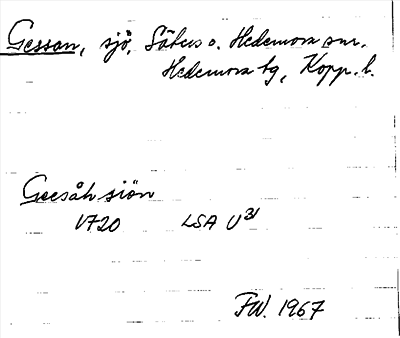 Gessan, sjö, Säters o. Hedemora snr.
Hedemora tg, Kopp. l.
Geesåh siön
1720 LSA U 21
FW. 1967